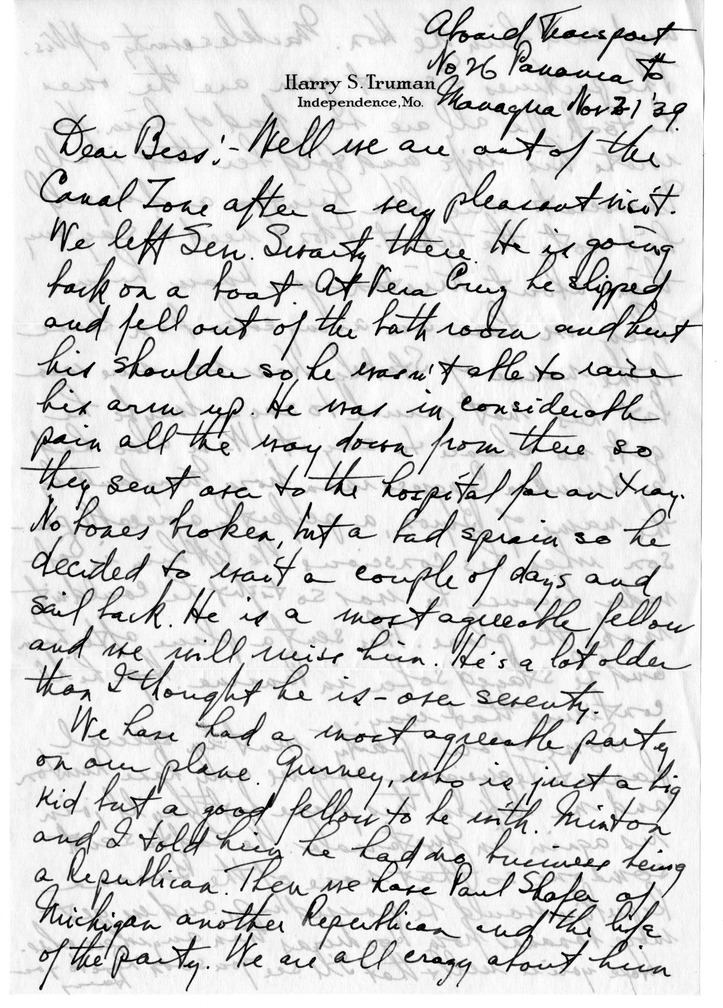 Aboard Transport
No 26 Panama to
Harry S. Truman
Independence, Mo.
Managua Nov 21 '39.
Dear Bess:- Well we are out of the
Canal Zone after a very pleasant visit.
We left Sen. Swartz there. He is going
back on a boat. At Vera Cruz he slipped
and fell out of the bath room and hurt
his shoulder so he wasn't able to raise
his arm up. He was in considerable
pain all the way down from there so
they sent over to the hospital for an Xray.
No bones broken, but a bad sprain so he
decided to wait a couple of days and
sail back. He is a most agreeable fellow
and we will miss him. He's a lot older
than I thought he is - over seventy.
We have had a most agreeable party
on our plane. Gurney, who is just a big
kid but a good fellow to be with. Minton
and I told him he had no business being
a Republican. Then we have Paul Shafer of
Michigan another Republican and the life
of the party. We are all crazy about him